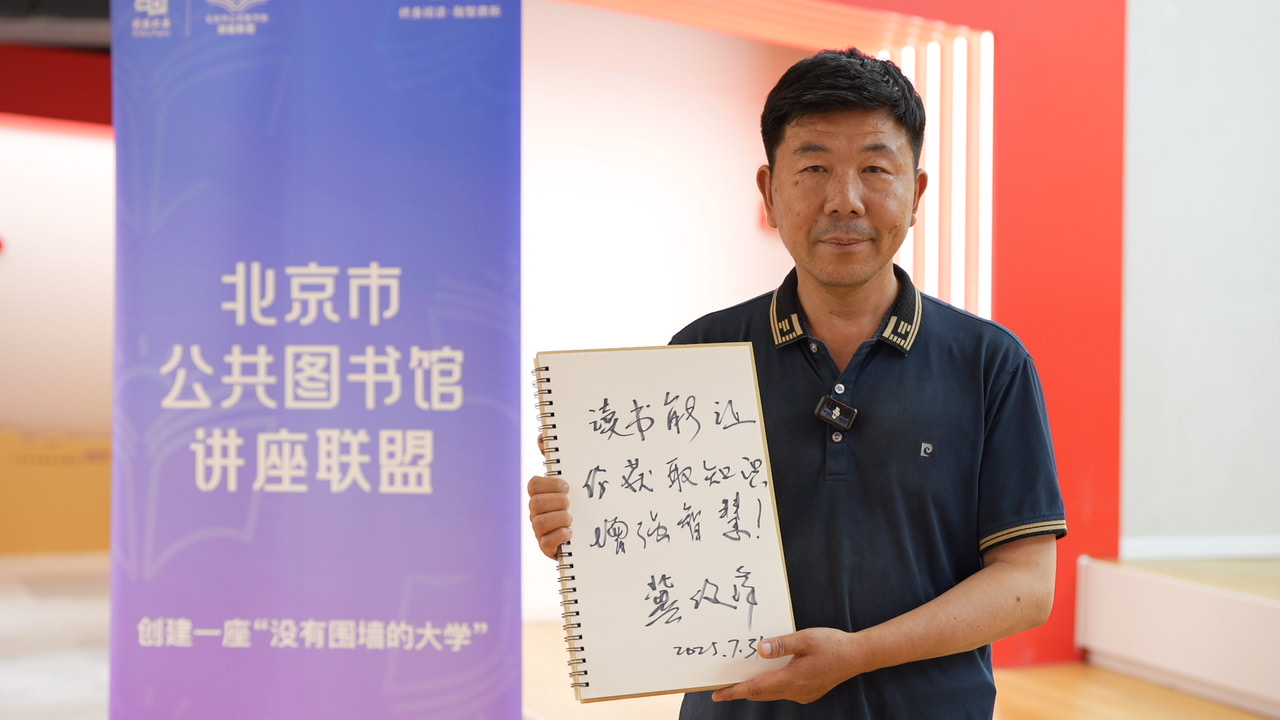 终身阅读·融智鼎新
北京市
公共图书馆
讲座联盟
创建一座“没有围墙的大学”
读书能让
你获取知识
增强智慧！
2025.7.31